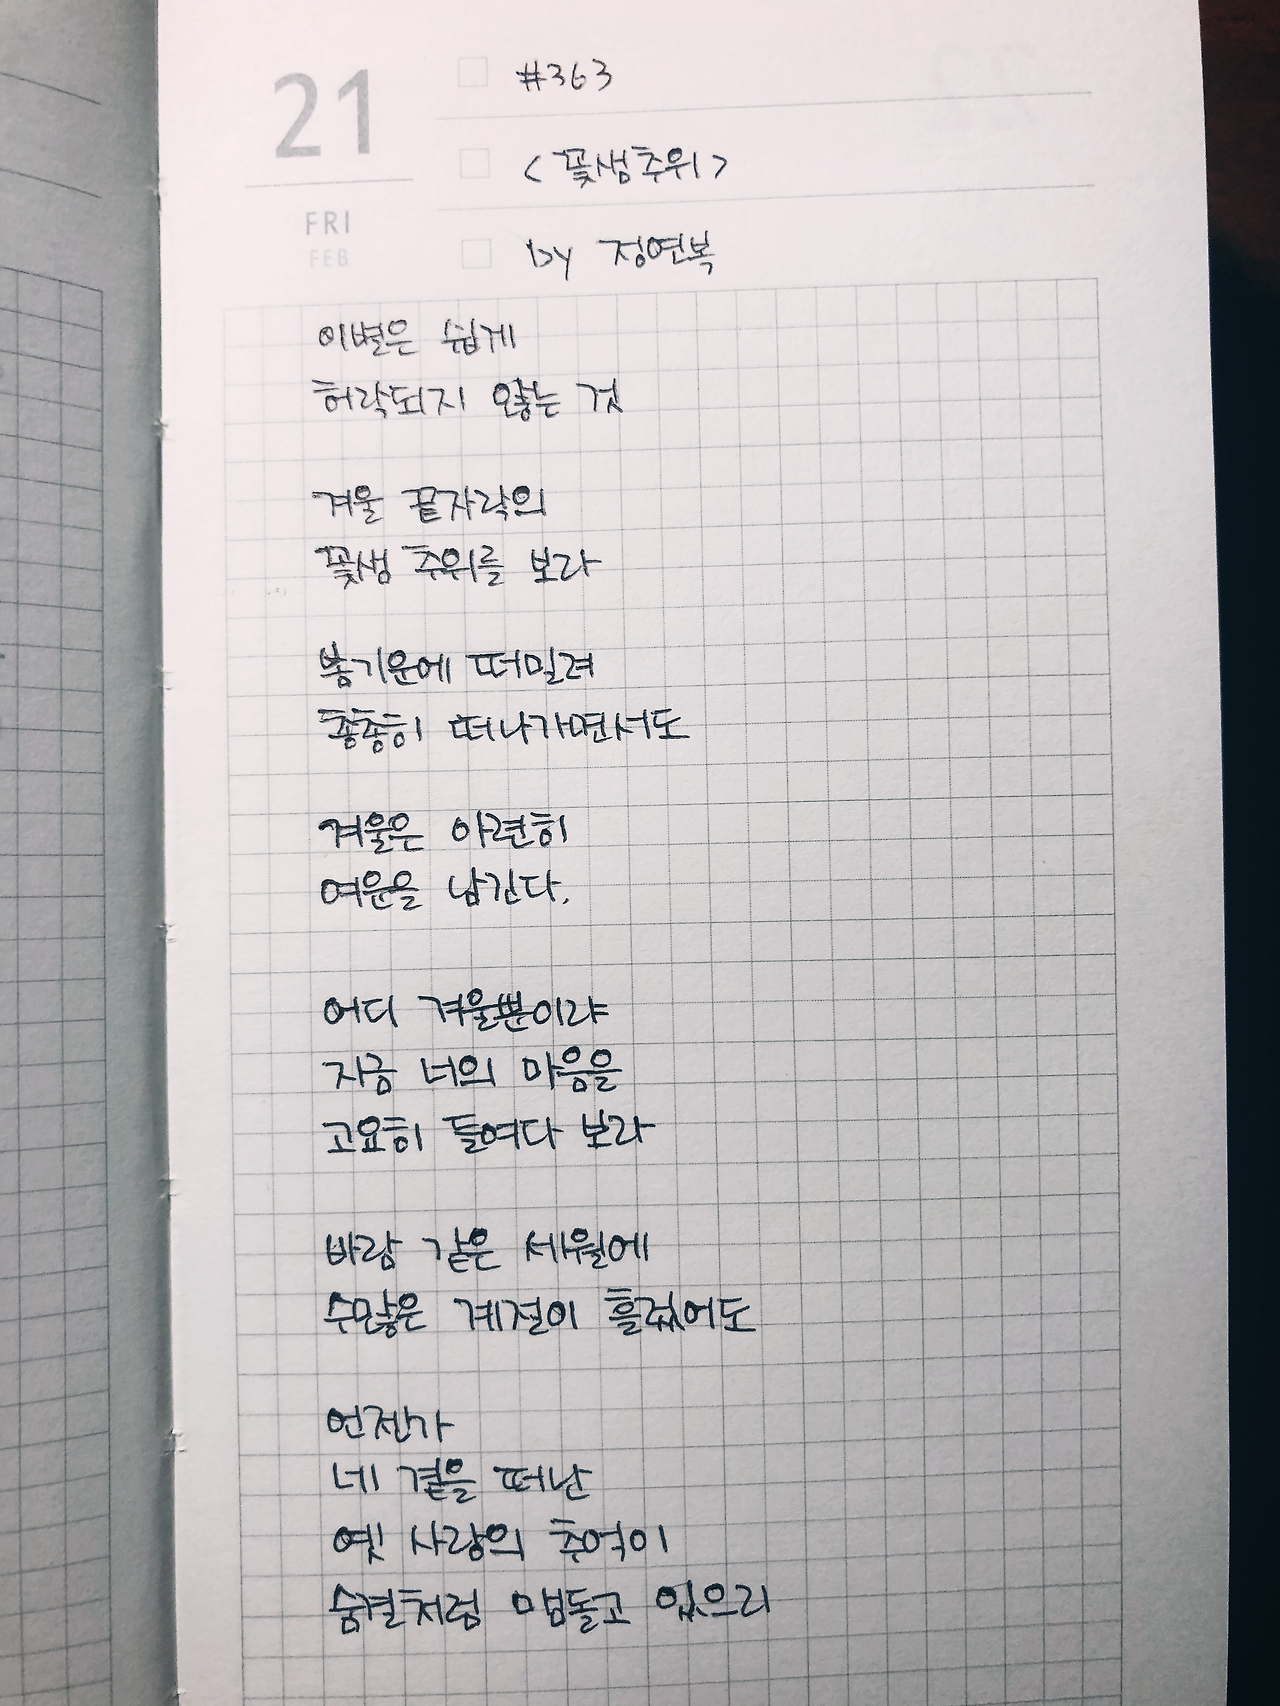 21
FRI
FEB
#363
<꽃샘추위>
by 정연복
이별은 쉽게
허락되지 않는 것
겨울 끝자락의
꽃샘 추위를 보라
봄기운에 떠밀려
총총히 떠나가면서도
겨울은 아련히
여운을 남긴다.
어디 겨울뿐이랴
지금 너의 마음을
고요히 들여다 보라
바람 같은 세월에
수많은 계절이 흘렀어도
언젠가
네 곁을 떠난
옛 사랑의 추억이
숨결처럼 맴돌고 있으리